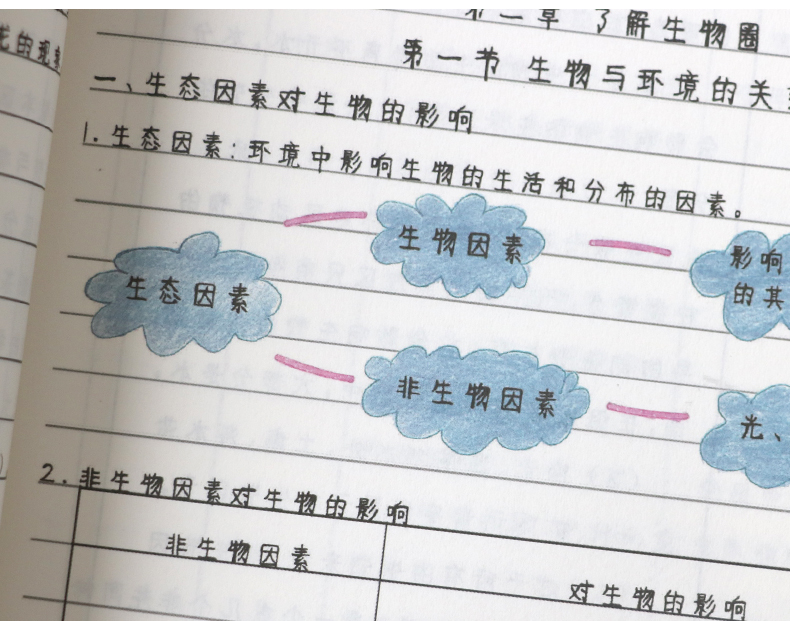 章 了解生物圈
第一节 生物与环境的关
一、生态因素对生物的影响
1. 生态因素：环境中影响生物的生活和分布的因素。
生态因素
生物因素
影响
的其
非生物因素
光、
2. 非生物因素对生物的影响
非生物因素
对生物的影响
的现